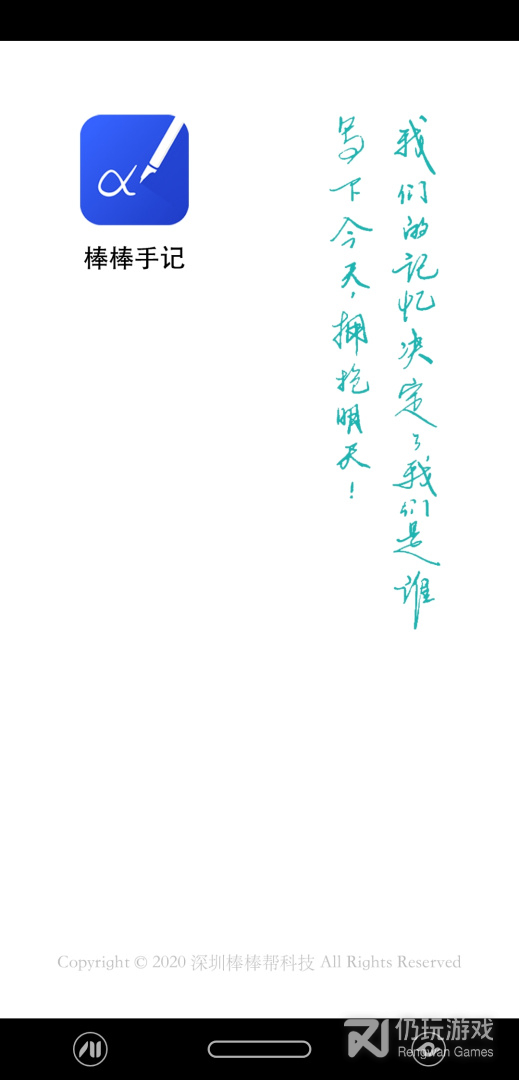 α
棒棒手记
我们的记忆决定了我们是谁
写下今天，拥抱明天！
Copyright © 2020 深圳棒棒帮科技 All Rights Reserved
仍玩游戏
Rengwan Games